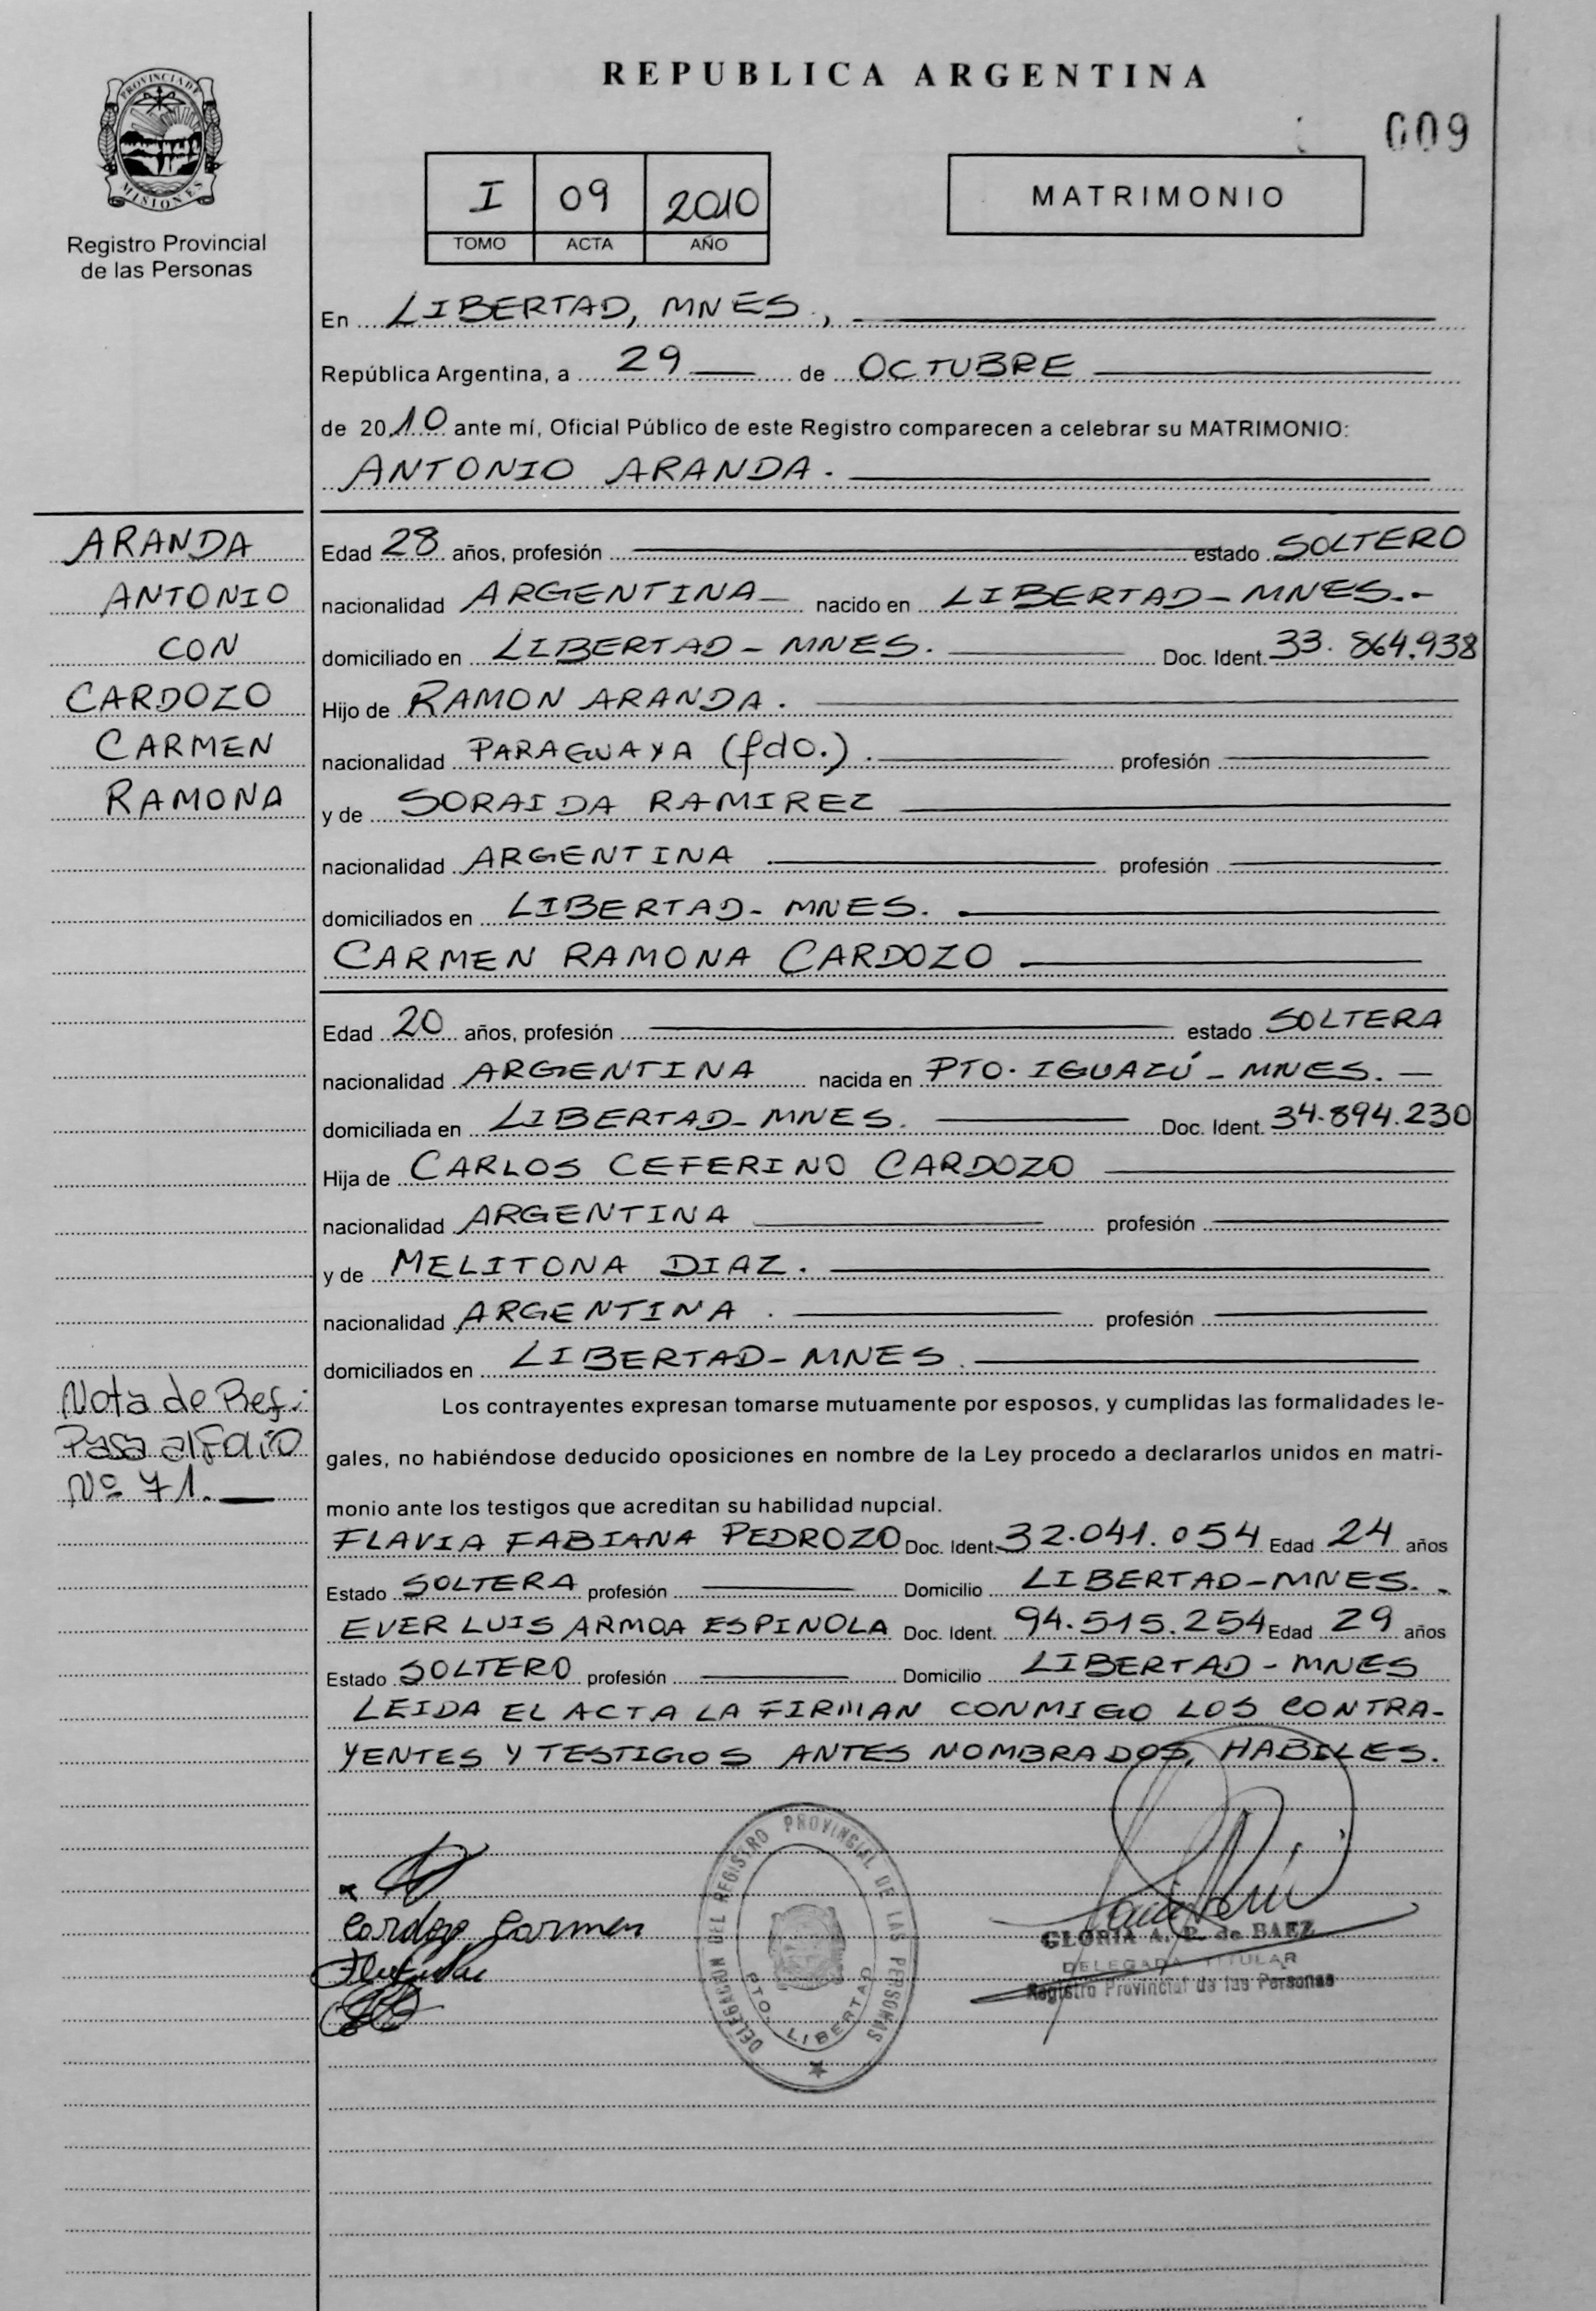 REPUBLICA ARGENTINA
009
PROVINCIA DE MISIONES
Registro Provincial
de las Personas
I 09 2010
TOMO ACTA AÑO
MATRIMONIO
En LIBERTAD, MNES.,
República Argentina, a 29 de OCTUBRE
de 2010 ante mí, Oficial Público de este Registro comparecen a celebrar su MATRIMONIO:
ANTONIO ARANDA.
ARANDA
ANTONIO
CON
CARDOZO
CARMEN
RAMONA
Edad 28 años, profesión estado SOLTERO
nacionalidad ARGENTINA nacido en LIBERTAD-MNES.-
domiciliado en LIBERTAD-MNES. Doc. Ident. 33.864.938
Hijo de RAMON ARANDA.
nacionalidad PARAGUAYA (fdo.). profesión
y de SORAIDA RAMIREZ
nacionalidad ARGENTINA profesión
domiciliados en LIBERTAD-MNES.
CARMEN RAMONA CARDOZO
Edad 20 años, profesión estado SOLTERA
nacionalidad ARGENTINA nacida en PTO. IGUAZÚ-MNES.
domiciliada en LIBERTAD-MNES. Doc. Ident. 34.894.230
Hija de CARLOS CEFERINO CARDOZO
nacionalidad ARGENTINA profesión
y de MELITONA DIAZ.
nacionalidad ARGENTINA. profesión
domiciliados en LIBERTAD-MNES.
Nota de Ref.:
Pasa al Folio
Nº 71.
Los contrayentes expresan tomarse mutuamente por esposos, y cumplidas las formalidades le-
gales, no habiéndose deducido oposiciones en nombre de la Ley procedo a declararlos unidos en matri-
monio ante los testigos que acreditan su habilidad nupcial.
FLAVIA FABIANA PEDROZO Doc. Ident. 32.041.054 Edad 24 años
Estado SOLTERA profesión Domicilio LIBERTAD-MNES.
EVER LUIS ARMOA ESPINOLA Doc. Ident. 94.515.254 Edad 29 años
Estado SOLTERO profesión Domicilio LIBERTAD-MNES
LEIDA EL ACTA LA FIRMAN CONMIGO LOS CONTRA-
YENTES Y TESTIGOS ANTES NOMBRADOS, HABILES.
Cardozo Carmen
DELEGACION DEL REGISTRO PROVINCIAL DE LAS PERSONAS
PTO. LIBERTAD
GLORIA A. R. de BAEZ
DELEGADA TITULAR
Registro Provincial de las Personas